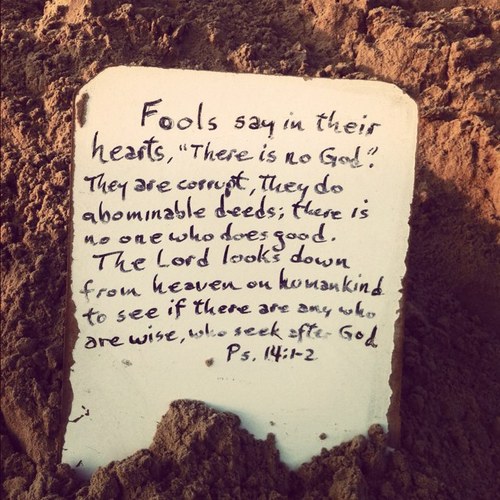 Fools say in their
hearts, "There is no God".
They are corrupt, They do
abominable deeds; there is
no one who does good.
The Lord looks down
from heaven on humankind
to see if there are any who
are wise, who seek after God
Ps. 14:1-2